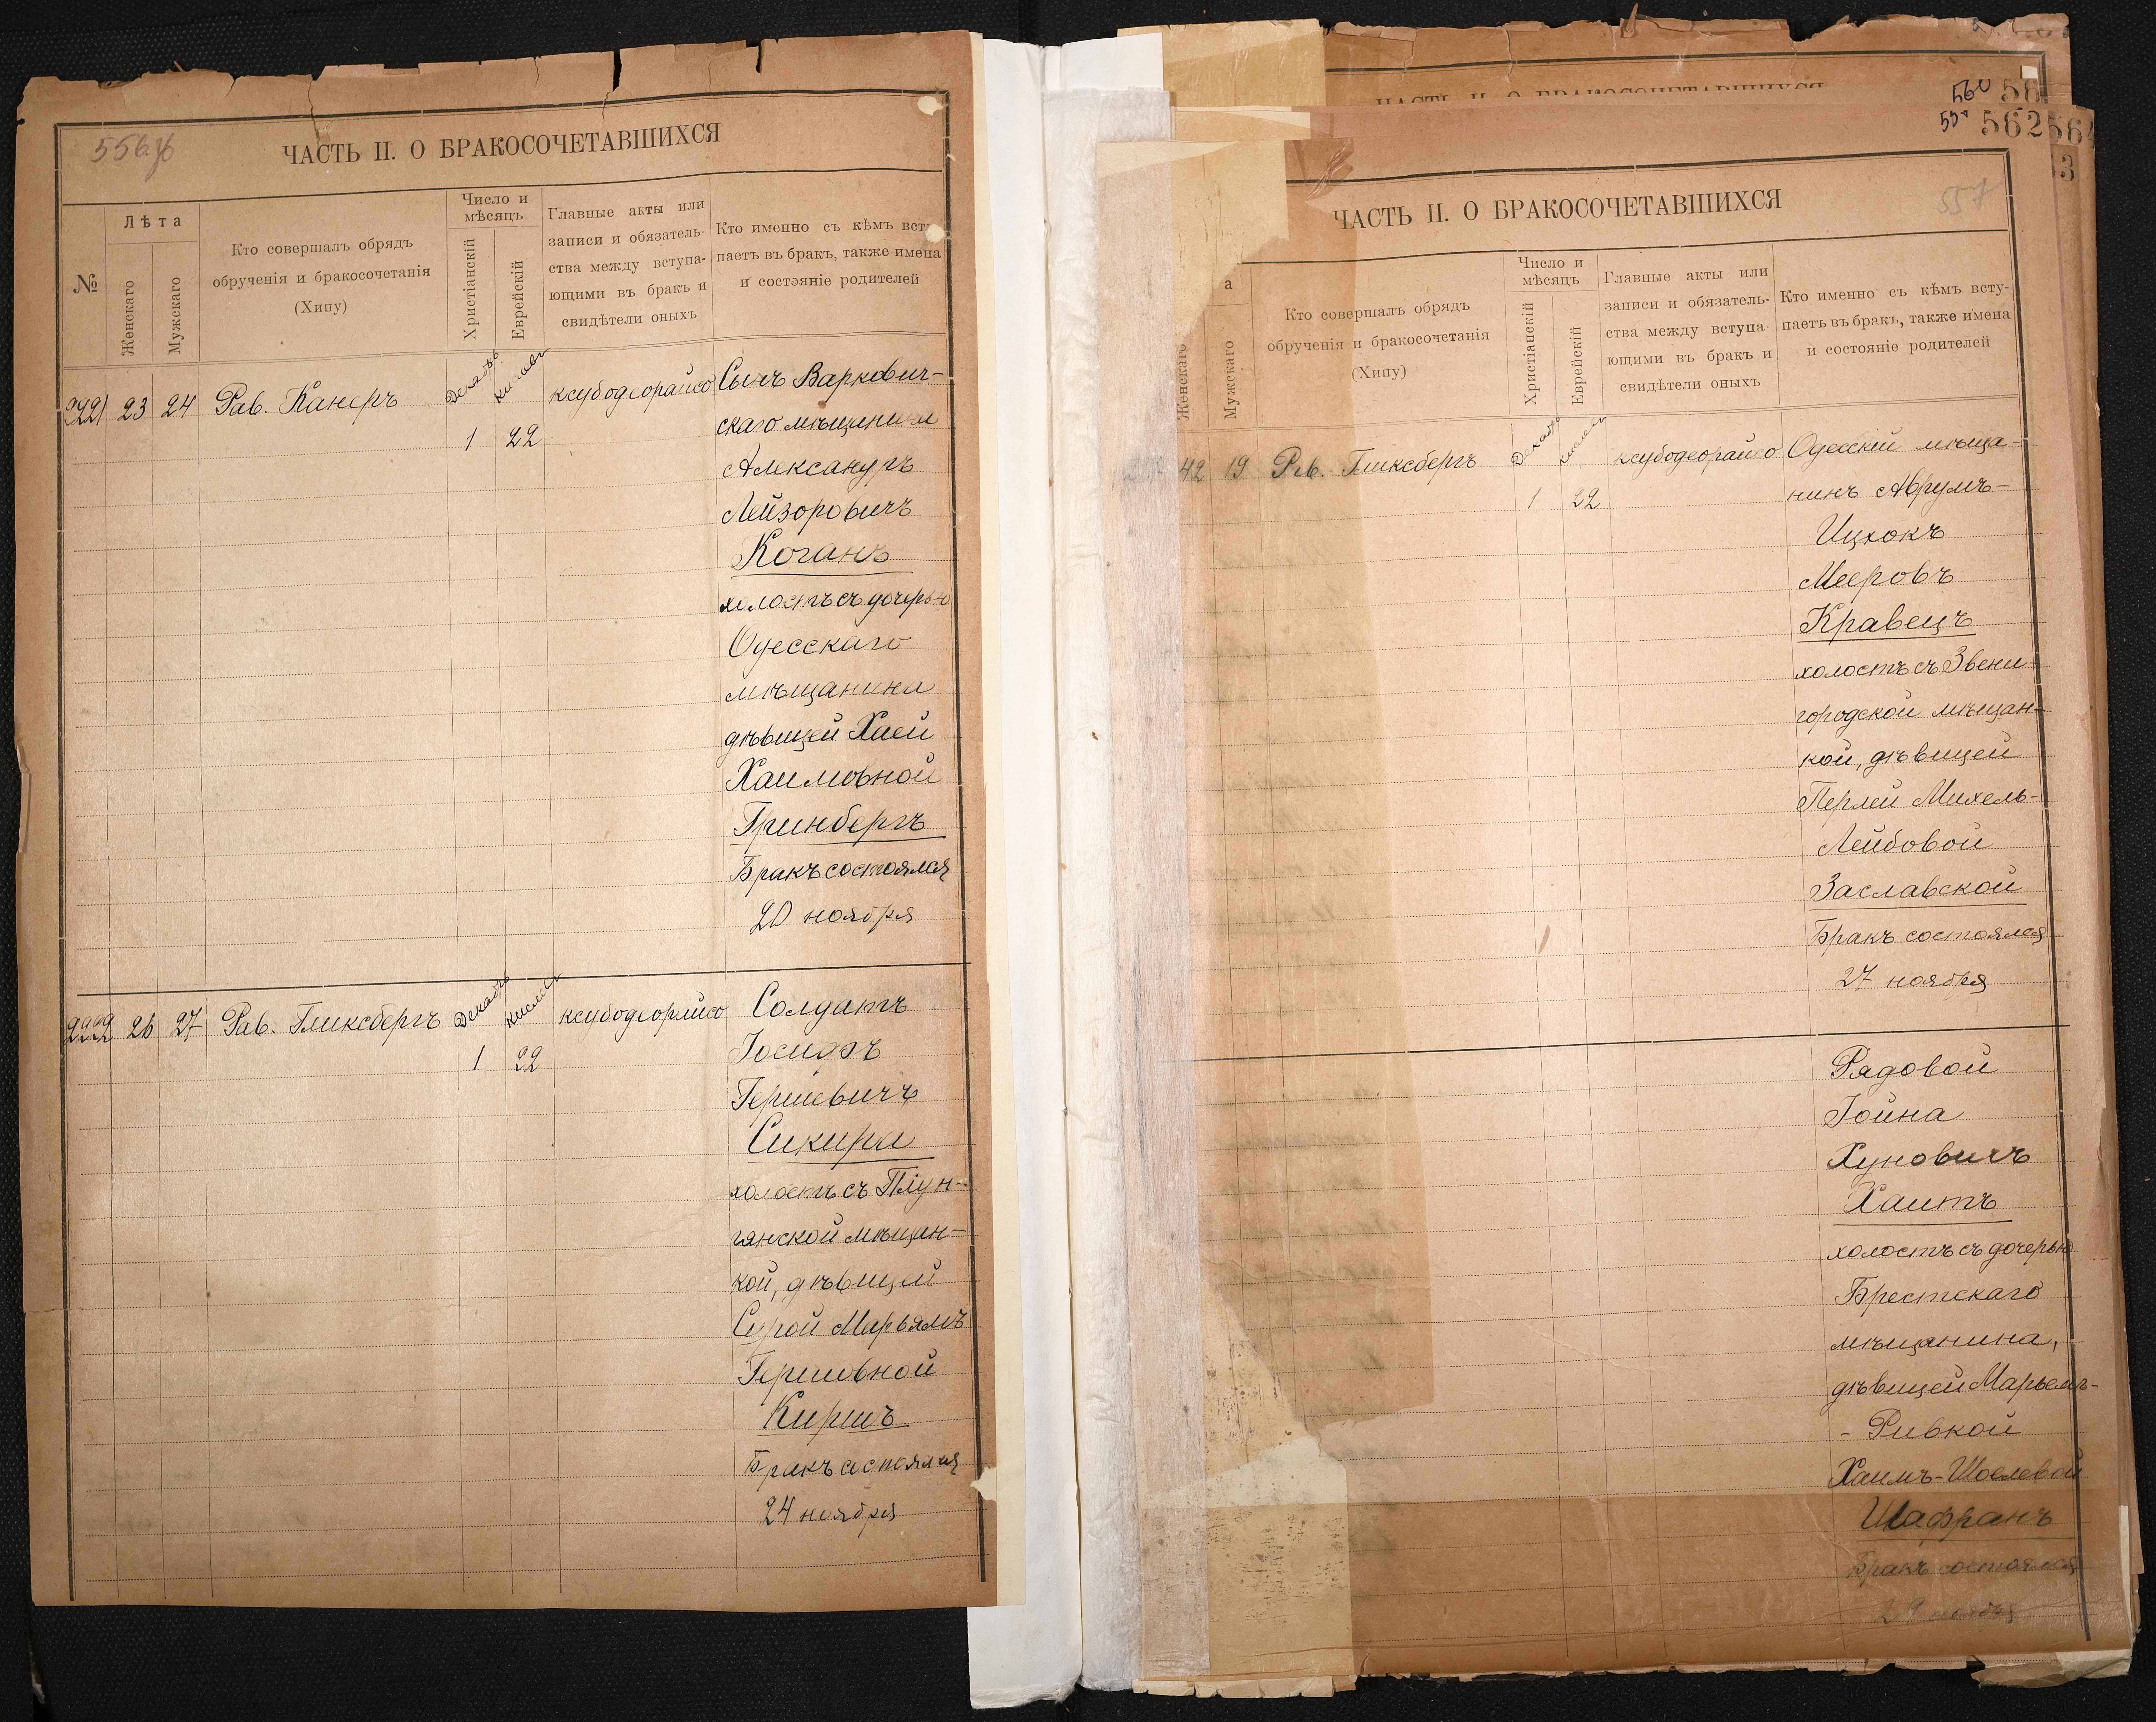 556 об
ЧАСТЬ II. О БРАКОСОЧЕТАВШИХСЯ
№
Лѣта
Женскаго
Мужскаго
Кто совершалъ обрядъ
обрученія и бракосочетанія
(Хипу)
Число и
мѣсяцъ
Христіанскій
Еврейскій
Главные акты или
записи и обязатель-
ства между вступа-
ющими въ бракъ и
свидѣтели оныхъ
Кто именно съ кѣмъ всту
паетъ въ бракъ, также имена
и состояніе родителей
2221 23 24 Рав. Канеръ Декабрь кислевъ ксубодеорайсо Сынъ Варкович-
1 22 скаго мѣщанина
Александръ
Лейзоровичъ
Коганъ
холостъ съ дочерью
Одесскаго
мѣщанина
дѣвицей Хаей
Хаимовной
Гринбергъ
Бракъ состоялся
20 ноября
2222 26 27 Рав. Гликсбергъ Декабрь кислевъ ксубодеорайсо Солдатъ
1 22 Іосифъ
Гершевичъ
Сикира
холостъ съ Плун-
гянской мѣщан-
кой, дѣвицей
Сурой Марьямъ
Гершовной
Киршъ
Бракъ состоялся
24 ноября
560
56
562
3
557
ЧАСТЬ II. О БРАКОСОЧЕТАВШИХСЯ
а
Женскаго
Мужскаго
Кто совершалъ обрядъ
обрученія и бракосочетанія
(Хипу)
Число и
мѣсяцъ
Христіанскій
Еврейскій
Главные акты или
записи и обязатель-
ства между вступа-
ющими въ бракъ и
свидѣтели оныхъ
Кто именно съ кѣмъ всту-
паетъ въ бракъ, также имена
и состояніе родителей
42 19 Рав. Гликсбергъ Декабрь кислевъ ксубодеорайсо Одесскій мѣща-
1 22 нинъ Аврумъ-
Ицхокъ
Мееровъ
Кравецъ
холостъ съ Звени-
городской мѣщан-
кой, дѣвицей
Перлей Михель-
Лейбовой
Заславской
Бракъ состоялся
27 ноября
Рядовой
Іойна
Хуновичъ
Хаитъ
холостъ съ дочерью
Брестскаго
мѣщанина,
дѣвицей Марьемъ-
- Ривкой
Хаимъ-Шоелевой
Шафранъ
Бракъ состоялся
29 ноября